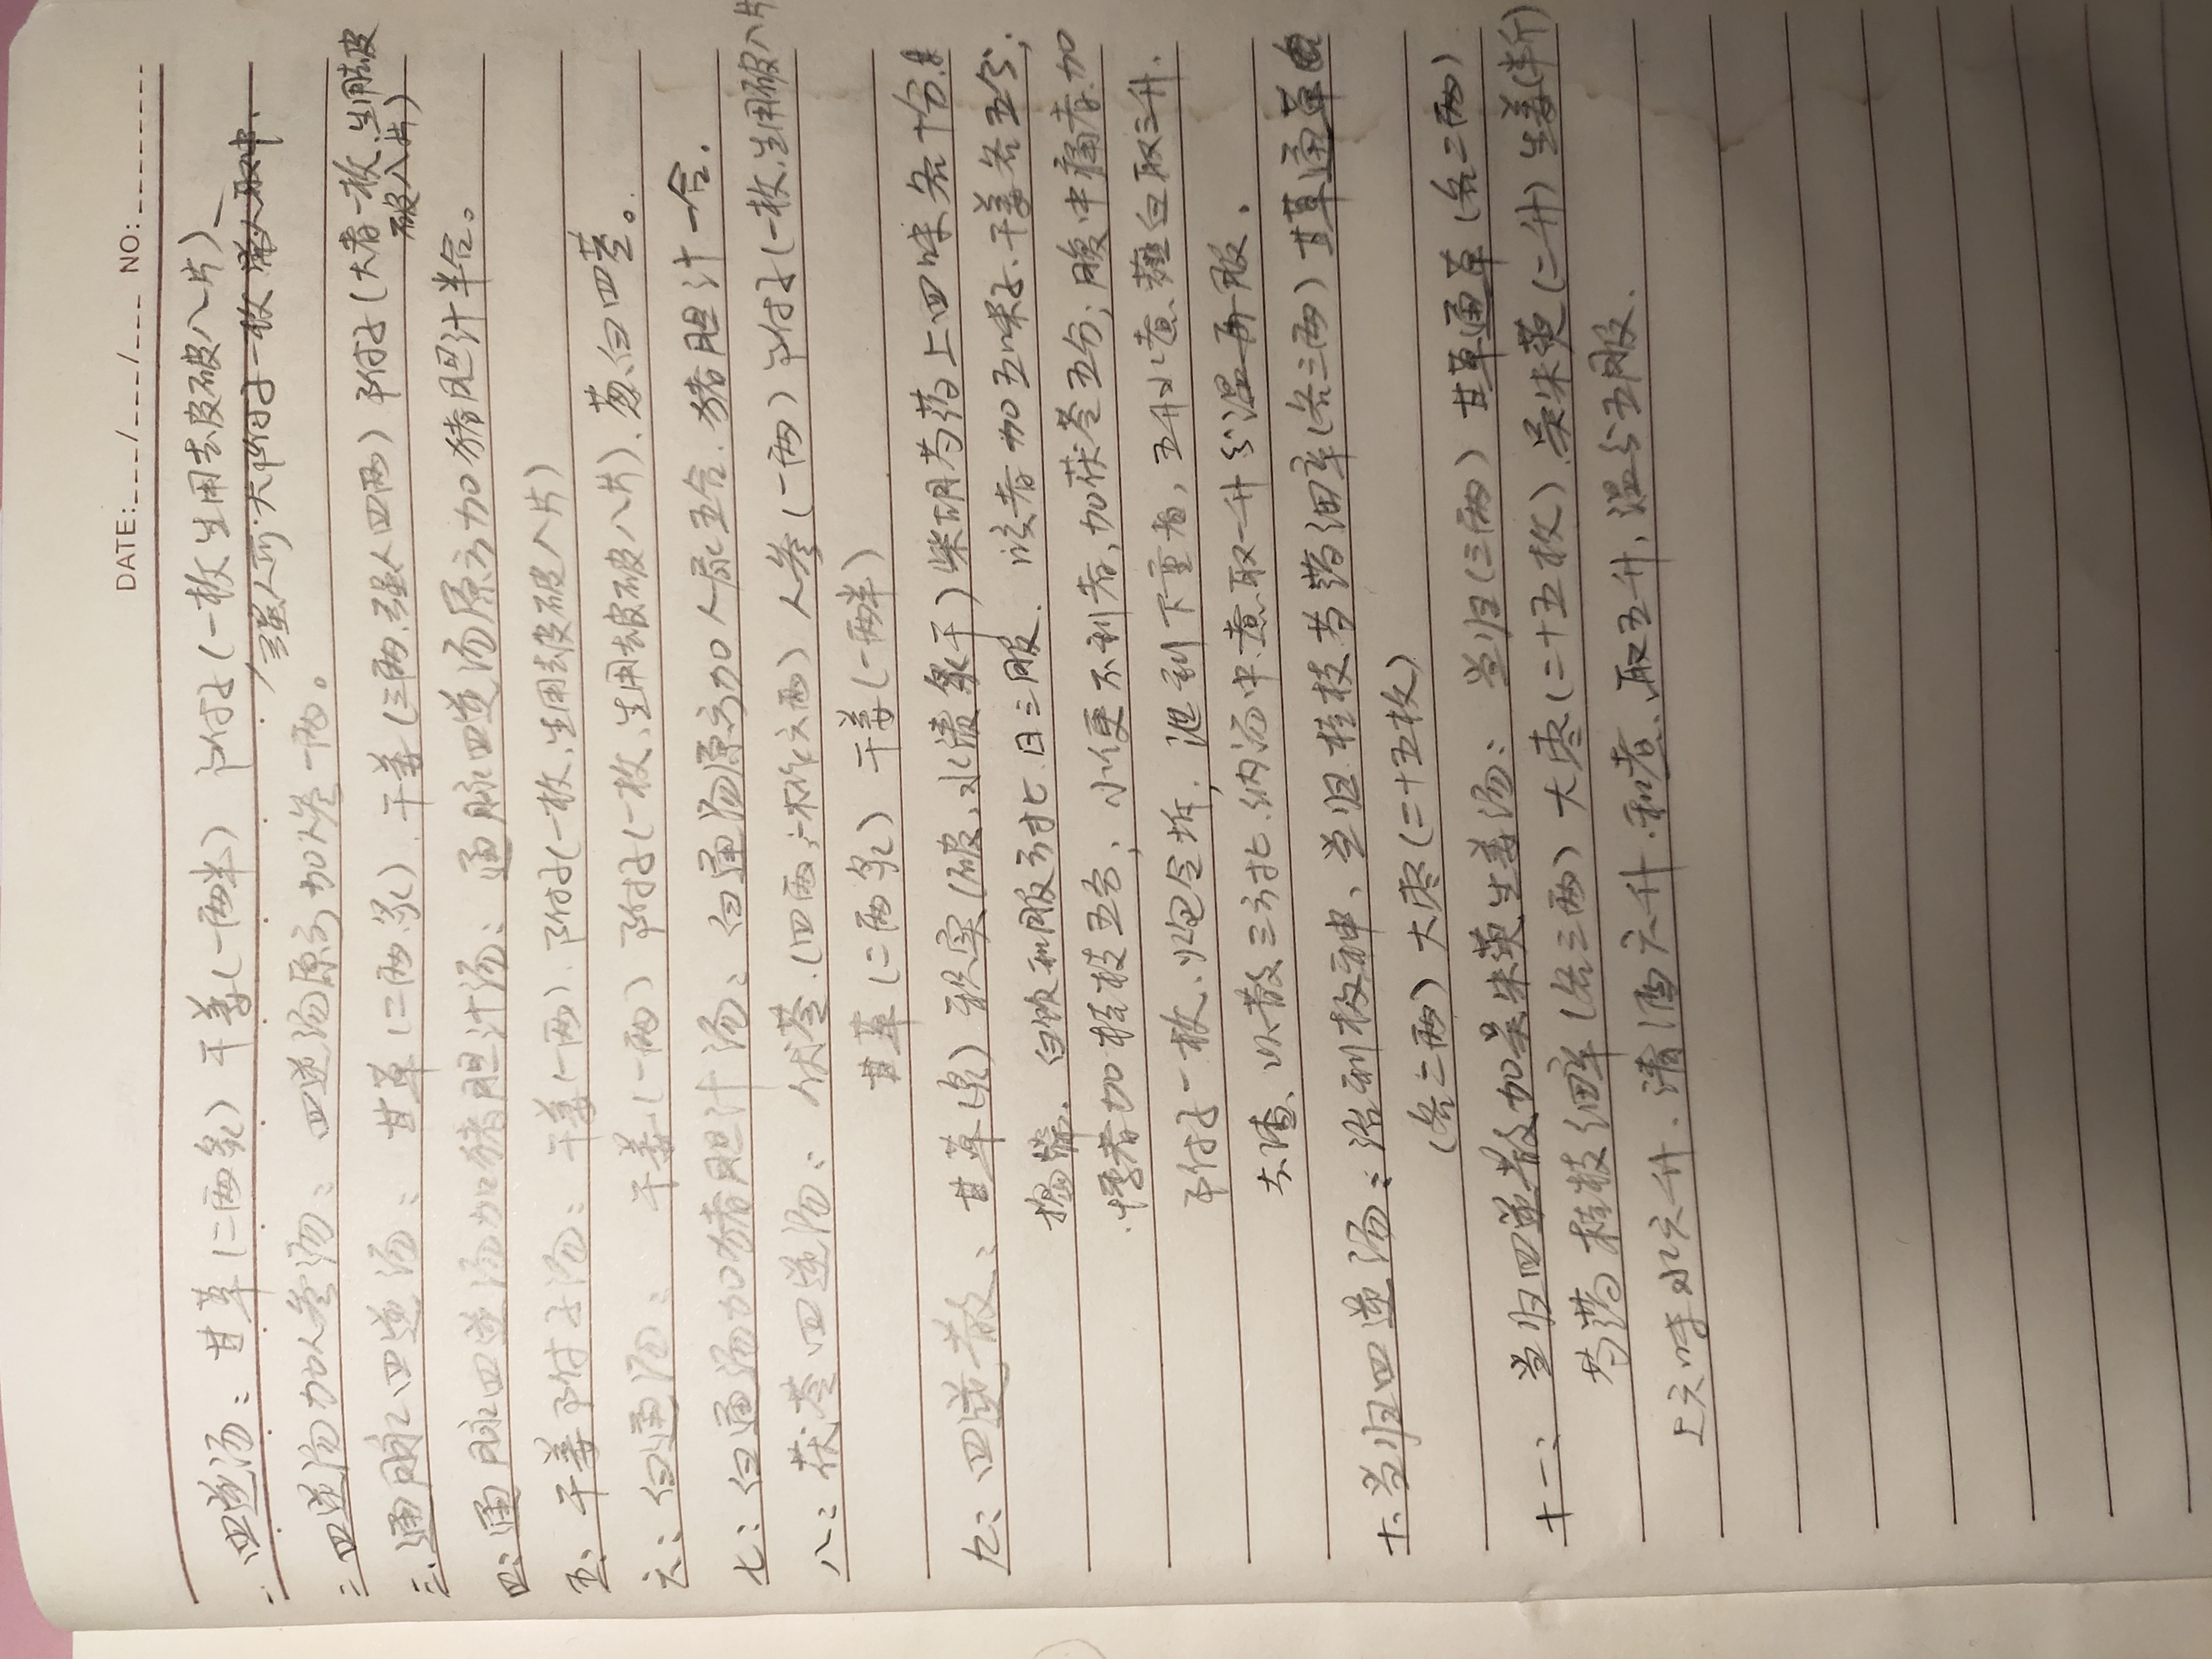 DATE:___/___/___ NO:
一:四逆汤:甘草(二两炙)干姜(一两半)附子(一枚生用去皮破八片)
强人可大附子一枚
二:四逆汤加人参汤:四逆汤原方加人参一两。
三:通脉四逆汤:甘草(二两.炙).干姜(三两.强人四两)附子(大者一枚.生用去皮
破八片)
四:通脉四逆汤加猪胆汁汤:通脉四逆汤原方加猪胆汁半合。
五:干姜附子汤:干姜(一两).附子(一枚.生用去皮破八片)
六:白通汤:干姜(一两)附子(一枚、生用去皮破八片).葱白四茎。
七:白通汤加猪胆汁汤:白通汤原方加人尿五合.猪胆汁一合.
八:茯苓四逆汤:伏苓.(四两;一本作六两)人参(一两)附子(一枚.生用破八片
甘草(二两炙)干姜(一两半)
九:四逆散:甘草(炙)枳实(破、水渍炙干)柴胡芍药上四味各十分.
捣筛.白饮和服方寸匕.日三服.咳者加五味子.干姜各五分;
悸者加桂枝五分;小便不利者,加茯苓五分;腹中痛者.加
附子一枚、炮令坼.泄利下重者,五升水煮薤白取三升.
去渣、以散三方寸匕.纳汤中.煮取一升分温再服.
十:当归四逆汤:治利枚神、当归.桂枝.芍药细辛(各三两)甘草通草
(各二两)大枣(二十五枚)
十一:当归四逆散加吴朱萸生姜汤:当归(三两)甘草通草(各二两).
芍药桂枝细辛(各三两)大枣(二十五枚).吴朱萸(二升)生姜(半斤)
上六味水六升.清酒六升.和煮、取五升、温分五服.